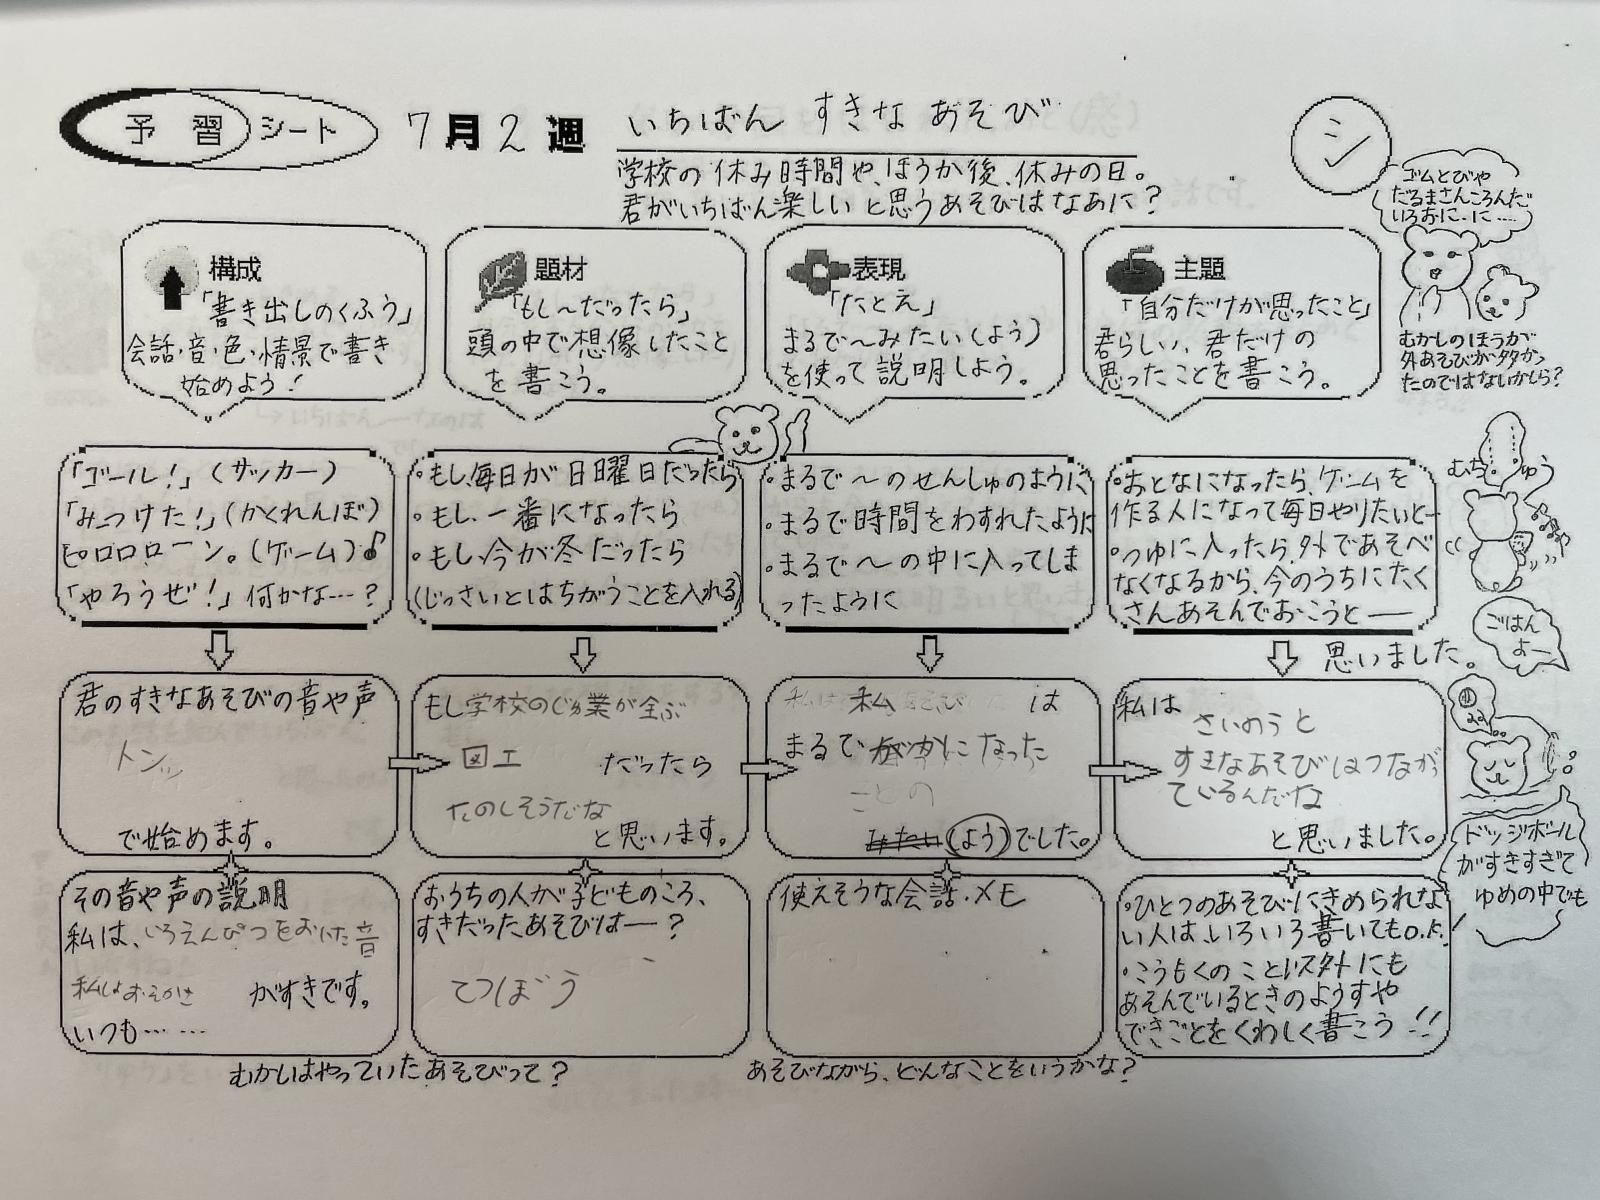 予習シート 7月2週 いちばん すきな あそび
シ
学校の休み時間や、ほうか後、休みの日。
君がいちばん楽しいと思うあそびはなあに?
ゴムとびや
だるまさんころんだ
いろおに・に……
むかしのほうが
外あそびが多かっ
たのではないかしら?
構成
「書き出しのくふう」
会話・音・色・情景で書き
始めよう!
題材
「もし〜だったら」
頭の中で想像したこと
を書こう。
表現
「たとえ」
まるで〜みたい(よう)
を使って説明しよう。
主題
「自分だけが思ったこと」
君らしい、君だけの
思ったことを書こう。
「ゴール!」(サッカー)
「みつけた!」(かくれんぼ)
ピロロローン。(ゲーム)♪
「やろうぜ!」何かな…?
・もし、毎日が日曜日だったら
・もし、一番になったら
・もし、今が冬だったら
(じっさいとはちがうことを入れる)
・まるで〜のせんしゅのように
・まるで時間をわすれたように
・まるで〜の中に入ってしま
ったように
・おとなになったら、ゲームを
作る人になって毎日やりたいと―
・つゆに入ったら、外であそべ
なくなるから、今のうちにたく
さんあそんでおこうと――
思いました。
むち ゅう
ごはん
よー
君のすきなあそびの音や声
トンッ
で始めます。
もし学校のじゅ業が全ぶ
図工 だったら
たのしそうだな
と思います。
私 は
まるで になった
ことの
みたい(よう)でした。
私は
さいのうと
すきなあそびはつながっ
ているんだな
と思いました。
ドッジボール
がすきすぎて
ゆめの中でも
その音や声の説明
私は、いろえんぴつをおいた音
がすきです。
いつも……
おうちの人が子どものころ、
すきだったあそびは―?
てつぼう
使えそうな会話・メモ
・ひとつのあそびにきめられな
い人は、いろいろ書いてもO.K.
・こうもくのこと以外にも
あそんでいるときのようすや
できごとをくわしく書こう!!
むかしはやっていたあそびって?
あそびながら、どんなことをいうかな?